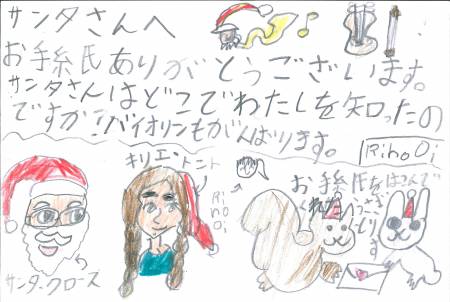 サンタさんへ
お手糸氏ありがとうございます。
サンタさんはどこでわたしを知ったの
ですか?バイオリンもがんばります。
Rino Oi
キリエントント
Rino
Oi
お手糸氏をはこんで
くれた
うさぎと
りす
サンタクロース